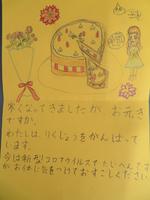 寒くなってきましたが お元き
ですか。
わたしは、りくじょうをがんばって
います。
今は新型コロナウイルスでたいへんです
がお体に気をつけておすごしください